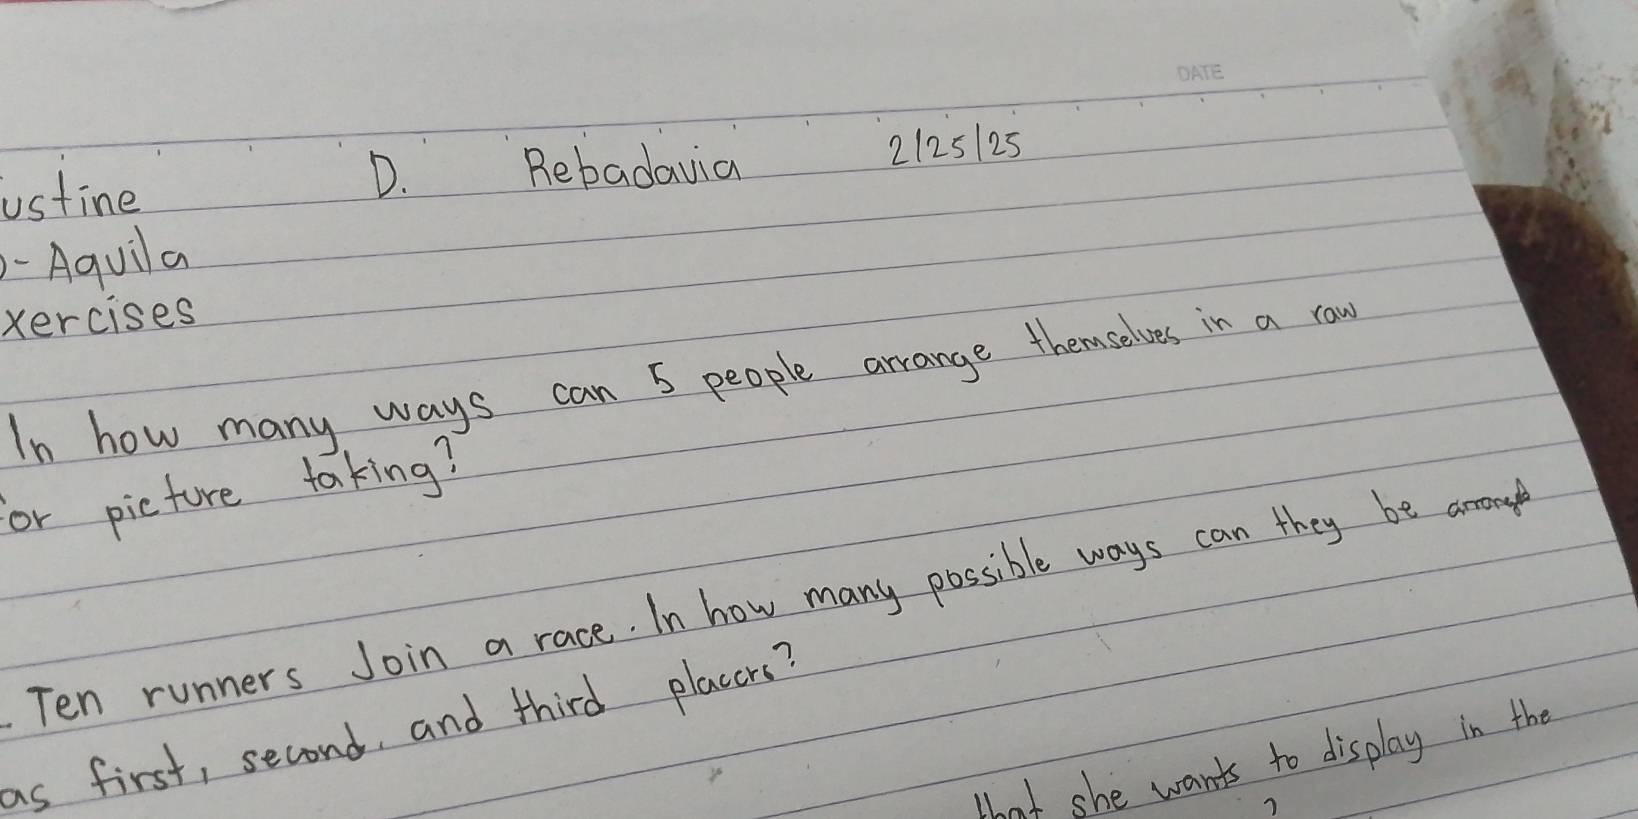 DATE
ustine D. Rebadavia 2/25/25
- Aquila
xercises
In how many ways can 5 people arrange themselves in a raw
for picture taking?
. Ten runners Join a race. In how many possible ways can they be
as first, second, and third placers?
that she wants to display in the
?